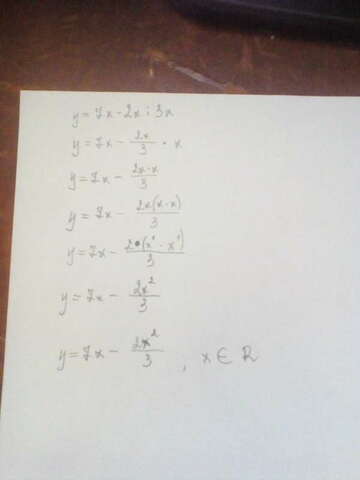 y = 7x - 2x : 3x
y = 7x - 2x/3 · x
y = 7x - 2x·x/3
y = 7x - 2x(x·x)/3
y = 7x - 2·(x¹·x¹)/3
y = 7x - 2x²/3
y = 7x - 2x²/3 , x ∈ R